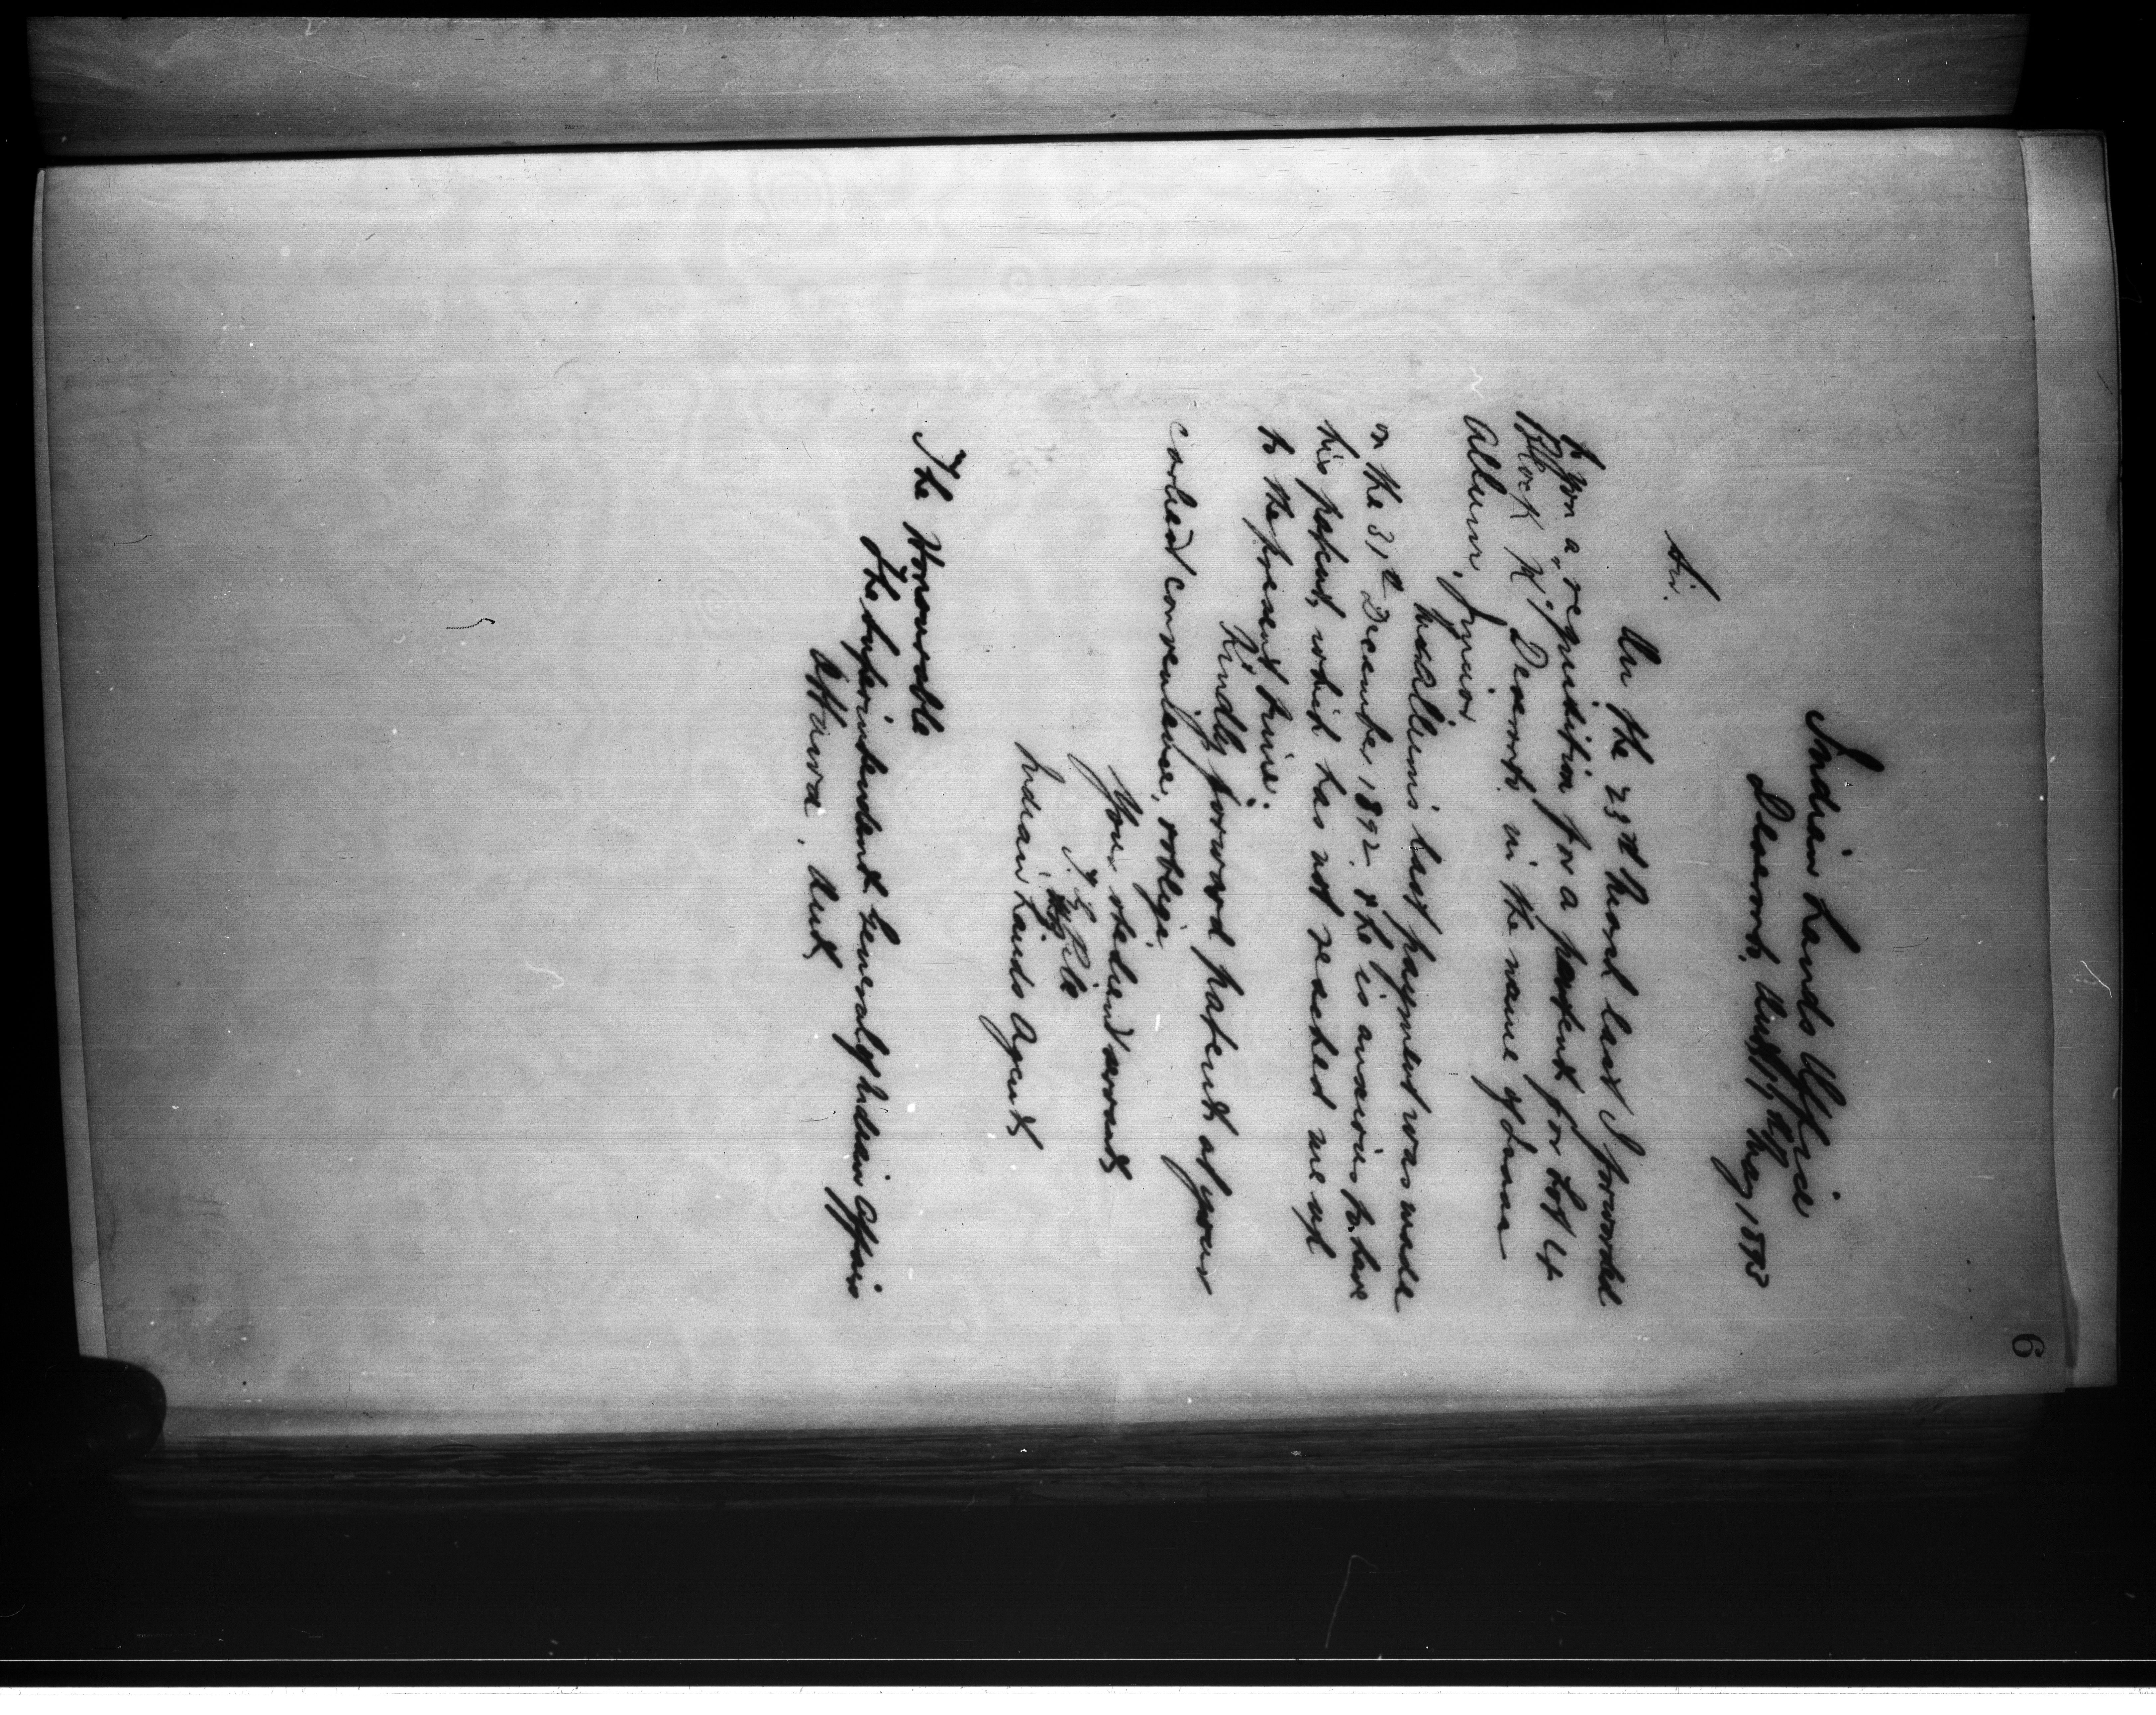 6
Indian Lands Office
Deseronto, Ont, May 1893
Sir.
On the 23rd March last I forwarded
to you a requisition for a patent for Lot 4
Block K. Deseronto in the name of
Allum, Junior
Allum's last payment was made
on the 31st December 1892 & he is anxious to have
his patent, which has not reached me up
to the present time.
Kindly forward patent at your
earliest convenience, & oblige
Your obedient servant
Indian Lands Agent
The Honourable
The Superintendent General of Indian Affairs
Ottawa. Ont